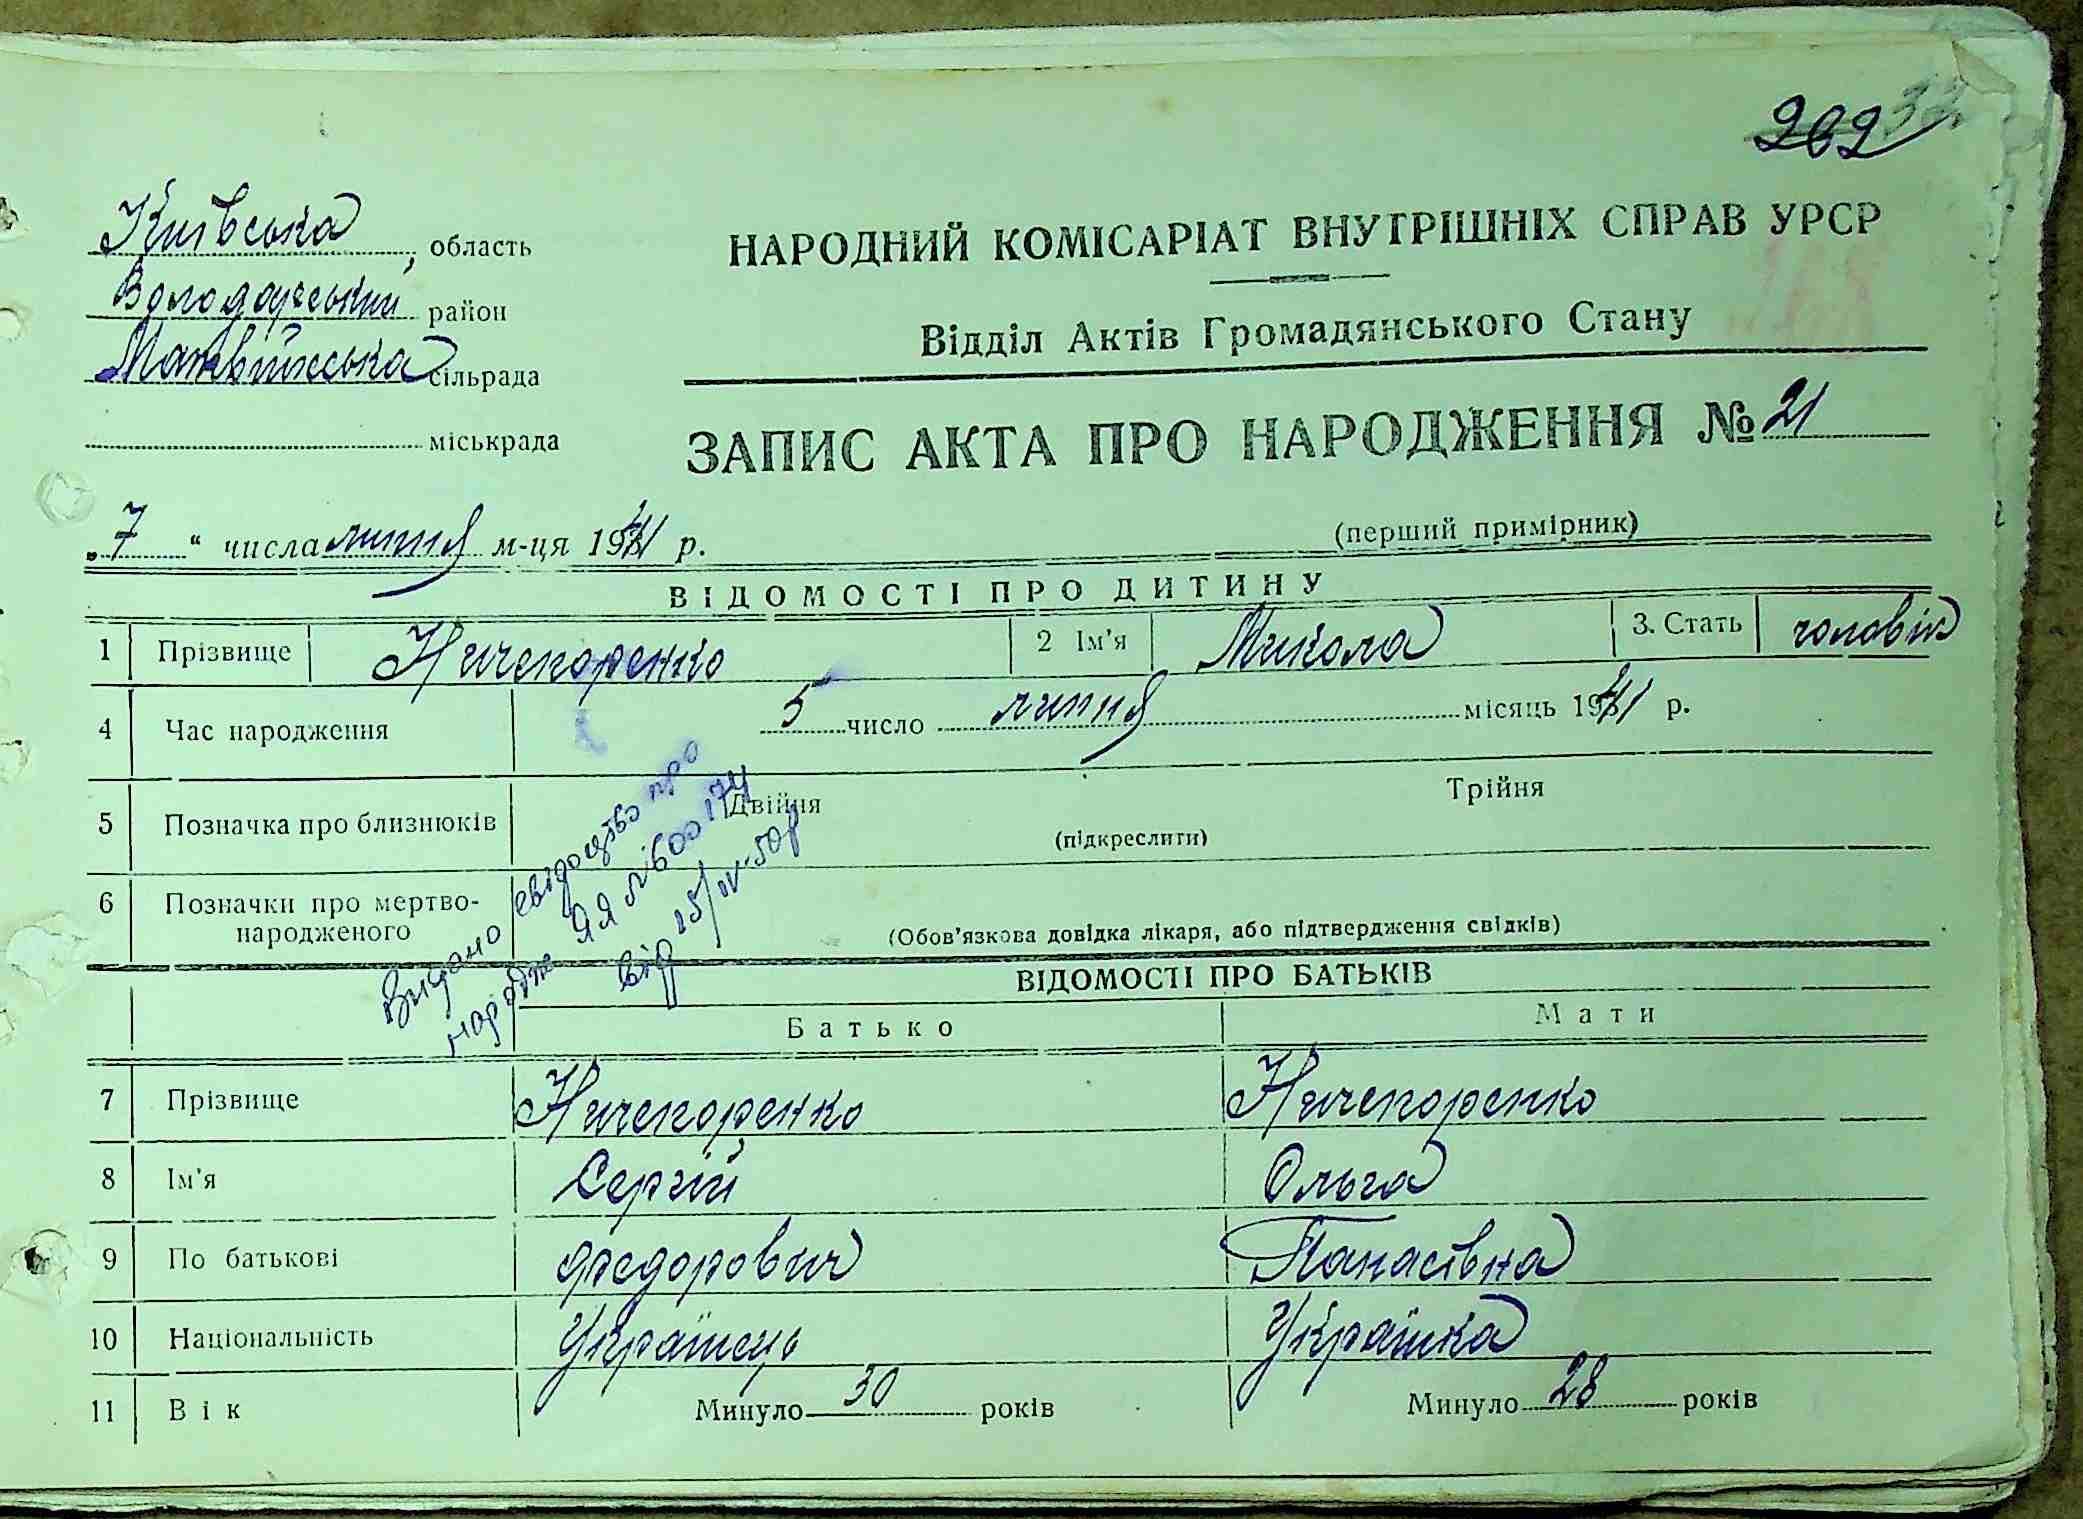 262
Київська область
Володарський район
Матвійська сільрада
міськрада
НАРОДНИЙ КОМІСАРІАТ ВНУТРІШНІХ СПРАВ УРСР
Відділ Актів Громадянського Стану
ЗАПИС АКТА ПРО НАРОДЖЕННЯ № 21
(перший примірник)
„7“ числа липня м-ця 1941 р.
ВІДОМОСТІ ПРО ДИТИНУ
1 Прізвище Ничепоренко 2 Ім'я Микола 3. Стать чоловік
4 Час народження 5 число липня місяць 1941 р.
5 Позначка про близнюків Двійня Трійня
(підкреслити)
6 Позначки про мертво-
народженого
(Обов'язкова довідка лікаря, або підтвердження свідків)
Видано свідоцтво про
народж ЯЯ № 600174
від 25/IV-50р
ВІДОМОСТІ ПРО БАТЬКІВ
Батько Мати
7 Прізвище Ничепоренко Ничепоренко
8 Ім'я Сергій Ольга
9 По батькові Федорович Панасівна
10 Національність Українець Українка
11 Вік Минуло 30 років Минуло 28 років